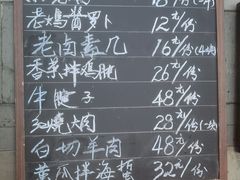 老鸡酱萝卜 12元/份
老卤素几 16元/份(4个)
香菜拌鸡胗 26元/份
牛腱子 48元/份
红烧大肉 23元/份(一块)
白切羊肉 48元/份
黄瓜拌海蜇 32元/份